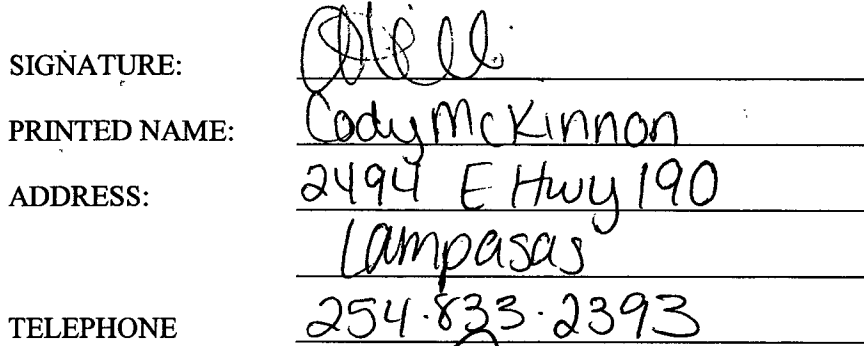 SIGNATURE:
PRINTED NAME: Cody McKinnon
ADDRESS: 2494 E Hwy 190
Lampasas
TELEPHONE 254.833.2393